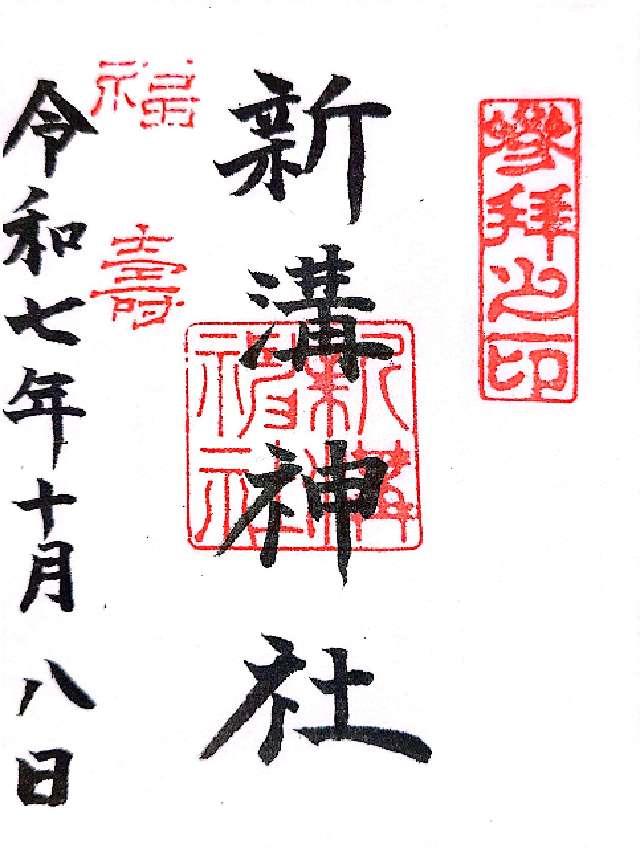 參拜之印
新溝神社
新溝神社
福壽
令和七年十月八日